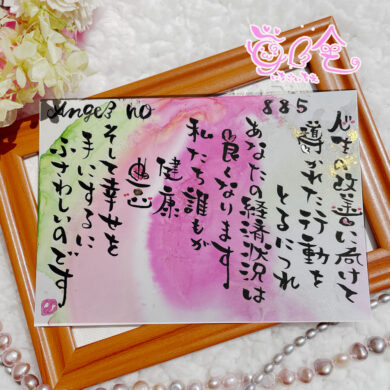 Angel no 885
人生の改善に向けて
導かれた行動を
とるにつれ
あなたの経済状況は
良くなります
私たち誰もが
健康
そして幸せを
手にするに
ふさわしいのです